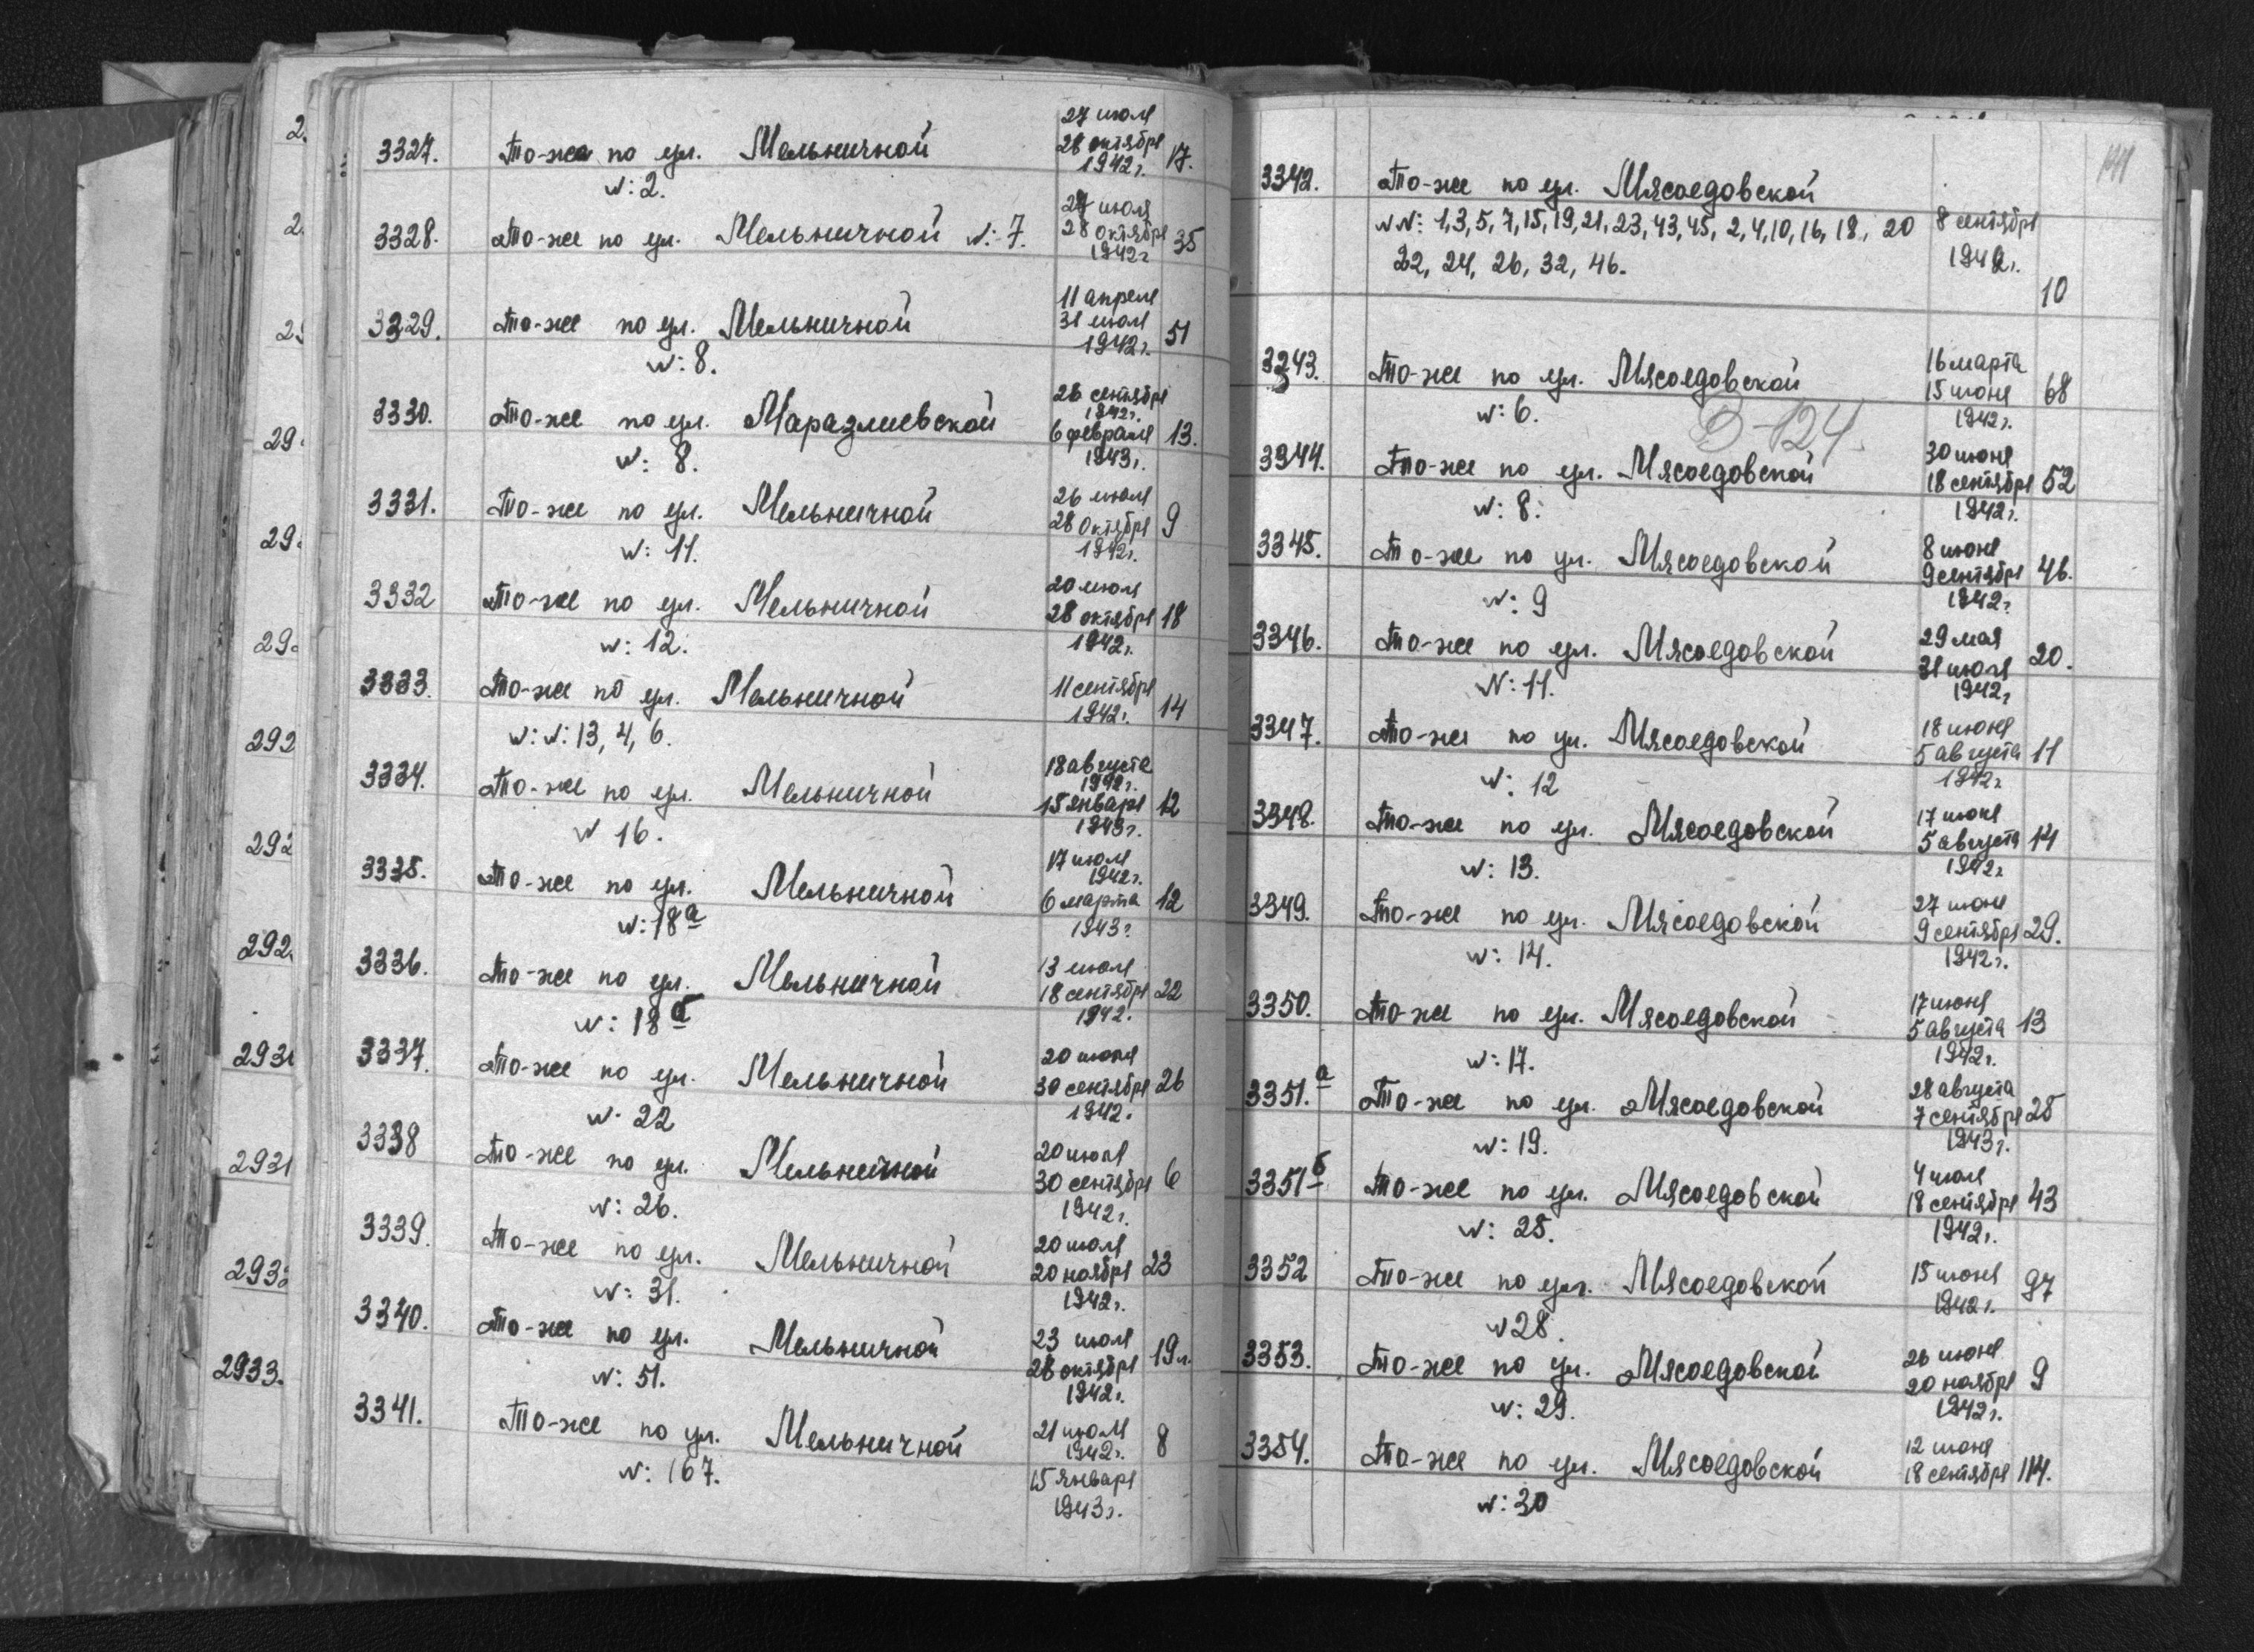 27 июля
3327. То-же по ул. Мельничной 28 октября 17.
1942г.
N: 2.
27 июля
3328. То-же по ул. Мельничной N: 7. 28 октября 35
1942г
11 апреля
3329. То-же по ул. Мельничной 31 июля 51
1942г.
N: 8.
26 сентября
1942г.
3330. То-же по ул. Маразлиевской 6 февраля 13.
N: 8. 1943г.
26 июля
3331. То-же по ул. Мельничной 28 октября 9
N: 11. 1942г.
20 июля
3332 То-же по ул. Мельничной 28 октября 18
N: 12. 1942г.
3333. То-же по ул. Мельничной 11 сентября 14
1942г.
N: N: 13, 4, 6.
18 августа
1942г.
3334. То-же по ул. Мельничной 15 января 12
N 16. 1943г.
17 июля
1942г.
3335. То-же по ул. Мельничной 6 марта 12
N: 18а 1943г
13 июля
3336. То-же по ул. Мельничной 18 сентября 22
N: 18б 1942.
20 июля
3337. То-же по ул. Мельничной 30 сентября 26
N: 22 1942.
20 июля
3338 То-же по ул. Мельничной 30 сентября 6
N: 26. 1942г.
20 июля
3339. То-же по ул. Мельничной 20 ноября 23
N: 31. 1942г.
23 июля
3340. То-же по ул. Мельничной 28 октября 19л.
N: 51. 1942г.
21 июля
3341. То-же по ул. Мельничной 1942г. 8
N: 167. 15 января
1943г.
141
3342. То-же по ул. Мясоедовской
NN: 1,3,5,7,15,19,21,23,43,45, 2,4,10,16,18, 20 8 сентября
22, 24, 26, 32, 46. 1942г.
10
16 марта
3343. То-же по ул. Мясоедовской 15 июня 68
N: 6. 1942г.
В-124.
30 июня
3344. То-же по ул. Мясоедовской 18 сентября 52
N: 8. 1942г.
8 июня
3345. То-же по ул. Мясоедовской 9 сентября 46.
N: 9 1942г.
29 мая
3346. То-же по ул. Мясоедовской 31 июля 20.
N: 11. 1942г
18 июня
3347. То-же по ул. Мясоедовской 5 августа 11
N: 12 1942г
17 июня
3348. То-же по ул. Мясоедовской 5 августа 14
N: 13. 1942г
27 июня
3349. То-же по ул. Мясоедовской 9 сентября 29.
N: 14. 1942г.
17 июня
3350. То-же по ул. Мясоедовской 5 августа 13
N: 17. 1942г.
28 августа
3351.а То-же по ул. Мясоедовской 7 сентября 25
N: 19. 1943г.
4 июля
3351б То-же по ул. Мясоедовской 18 сентября 43
N: 25. 1942г.
3352 То-же по ул. Мясоедовской 15 июня 97
N 28. 1942г.
26 июня
3353. То-же по ул. Мясоедовской 20 ноября 9
N: 29. 1942г.
12 июня
3354. То-же по ул. Мясоедовской 18 сентября 114.
N: 30
2931
2933.